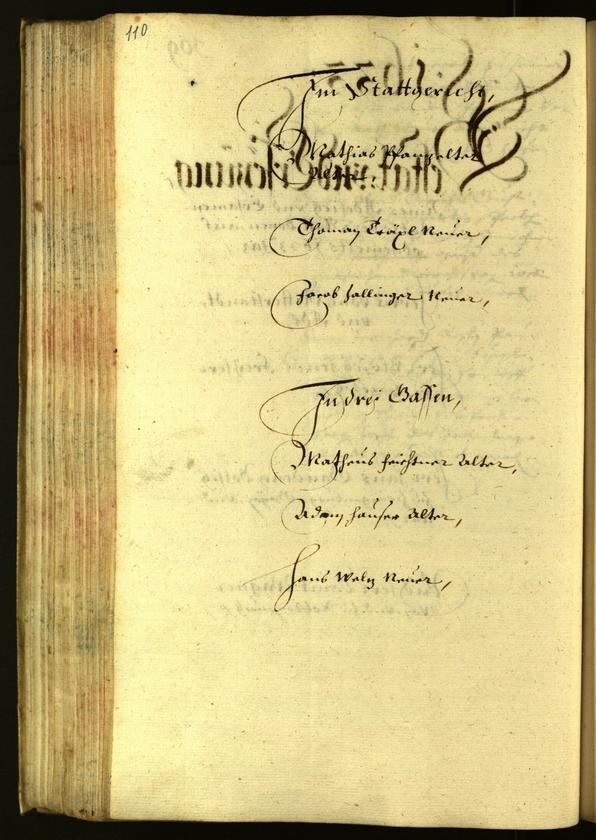 110
Im Stattgericht,
Mathias Pfanzelter
Alter,
Thoman Träxl Neuer,
Jacob hallinger Neuer,
In drej Gassen,
Matheus feichtner Alter,
Adam hauser Alter,
Hans Welz Neuer,